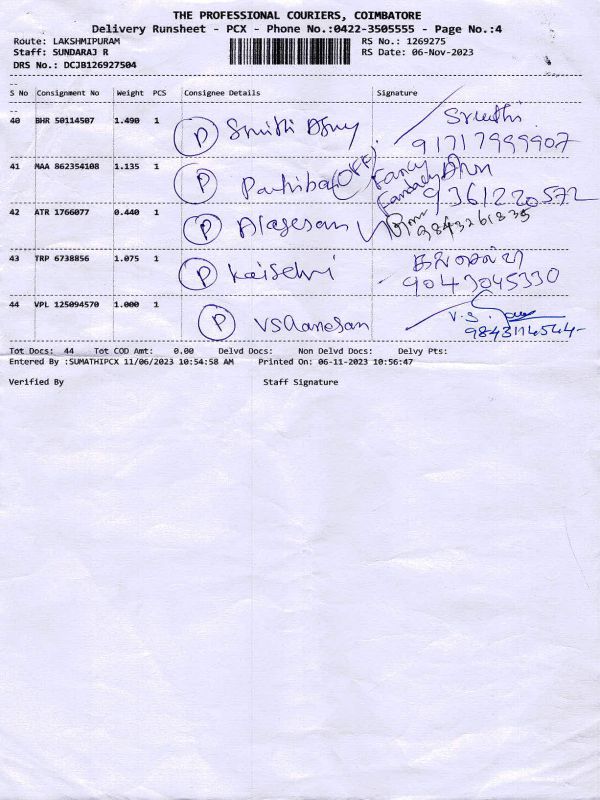 THE PROFESSIONAL COURIERS, COIMBATORE
Delivery Runsheet - PCX - Phone No.:0422-3505555 - Page No.:4
Route: LAKSHMIPURAM RS No.: 1269275
Staff: SUNDARAJ R RS Date: 06-Nov-2023
DRS No.: DCJB126927504
S No Consignment No Weight PCS Consignee Details Signature
40 BHR 50114507 1.490 1 P Sruthi
91717999907
41 MAA 862354108 1.135 1 P (OFF) Fancy
9361220572
42 ATR 1766077 0.440 1 P Alagesan 9843261835
43 TRP 6738856 1.075 1 P Kaiselvi கலைசெல்வி
9043045330
44 VPL 125094570 1.000 1 P VS Ganesan V.S.
9843114544
Tot Docs: 44 Tot COD Amt: 0.00 Delvd Docs: Non Delvd Docs: Delvy Pts:
Entered By :SUMATHIPCX 11/06/2023 10:54:58 AM Printed On: 06-11-2023 10:56:47
Verified By Staff Signature